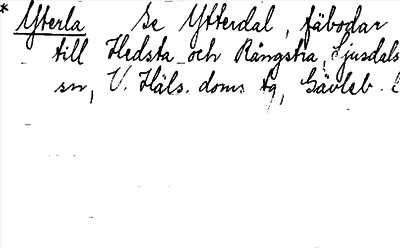 * Ytterla Se Ytterdal, fäbodar
till Hedsta och Rångstra, Ljusdals
sn, V. Häls. doms tg, Gävleb. l